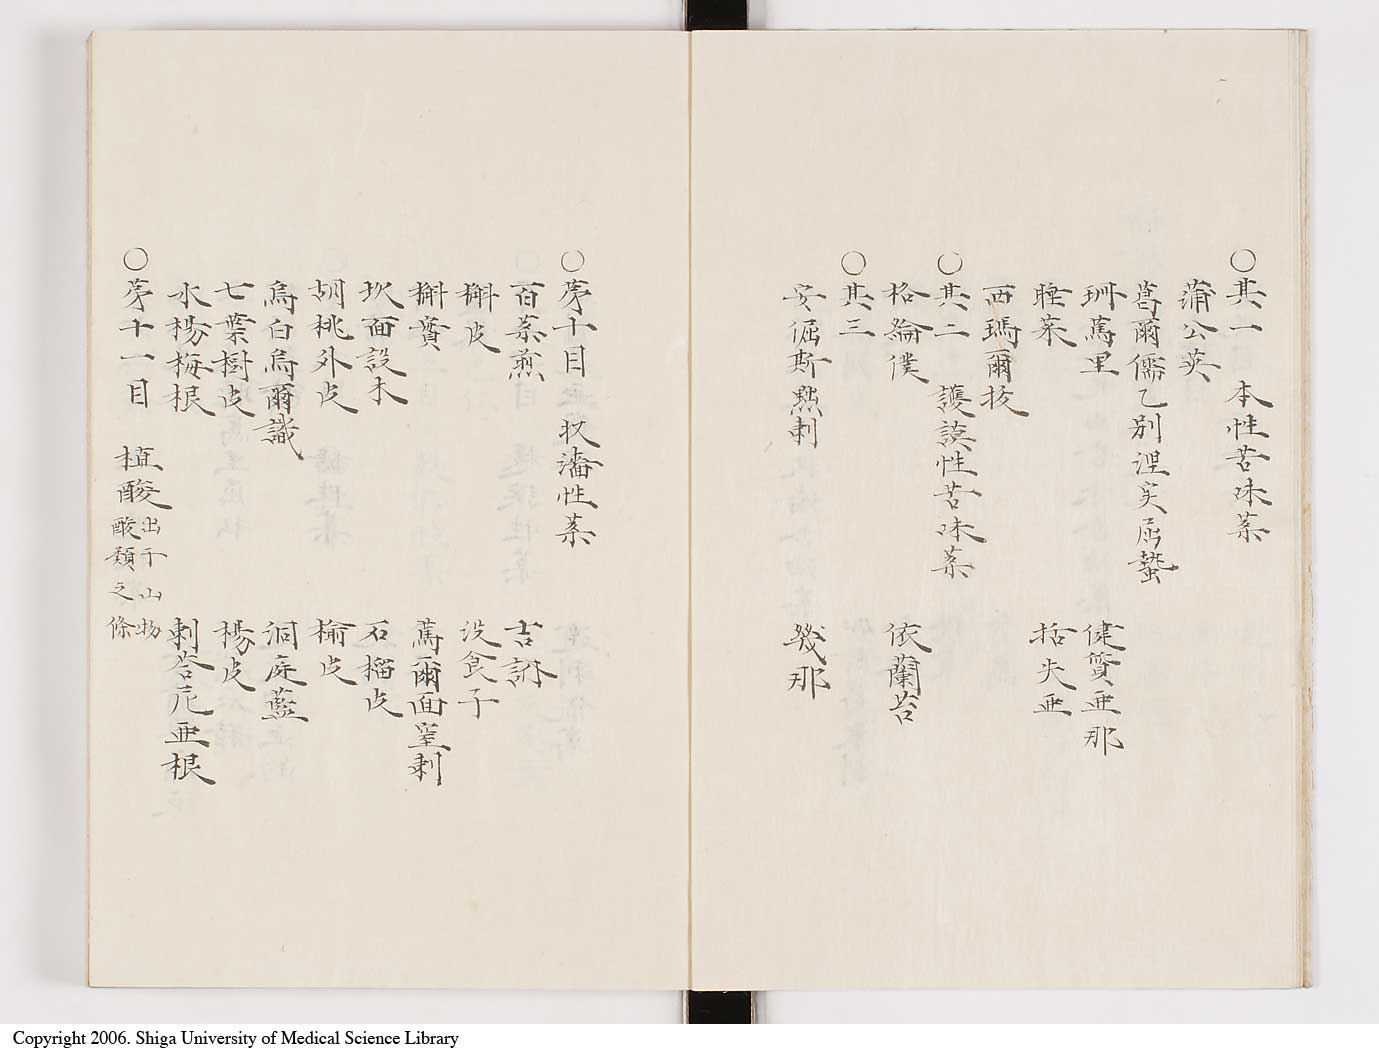 ○其一 本性苦味薬
蒲公英
葛爾儒乙別涅実屈蟄
珊篤里 健質亜那
睡菜 括失亜
西瑪爾抜
○其二 護謨性苦味薬
格綸僕 依蘭苔
○其三
安倔斯黙剌 幾那
○第十目 収濇性薬
百薬煎 吉納
槲皮 没食子
槲實 篤爾面窒剌
坎面設木 石榴皮
胡桃外皮 楡皮
烏白烏爾識 洞庭藍
七葉樹皮 楊皮
水楊梅根 剌答尼亜根
○第十一目 植酸 出于山物酸類之條
Copyright 2006. Shiga University of Medical Science Library